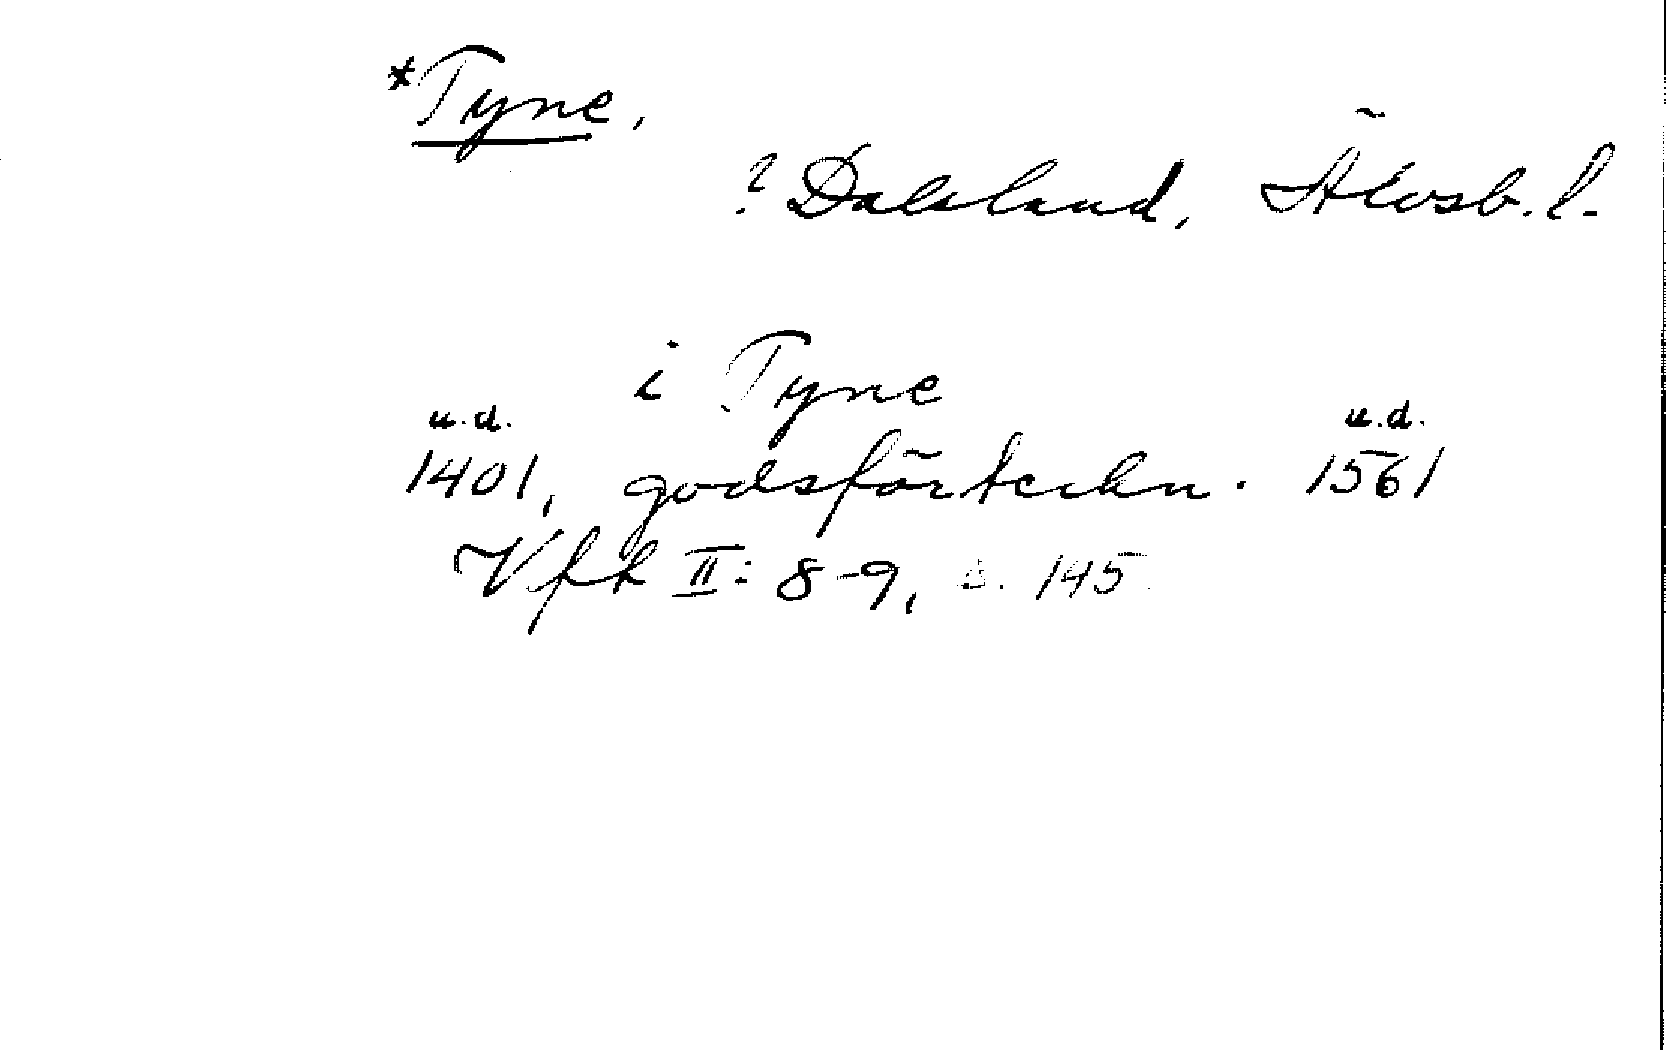 *Tyne.
? Dalsland, Älvsb. l.
i Tyne
u.d. u.d.
1401, godsförteckn. 1561
Vft II: 8-9, s. 145